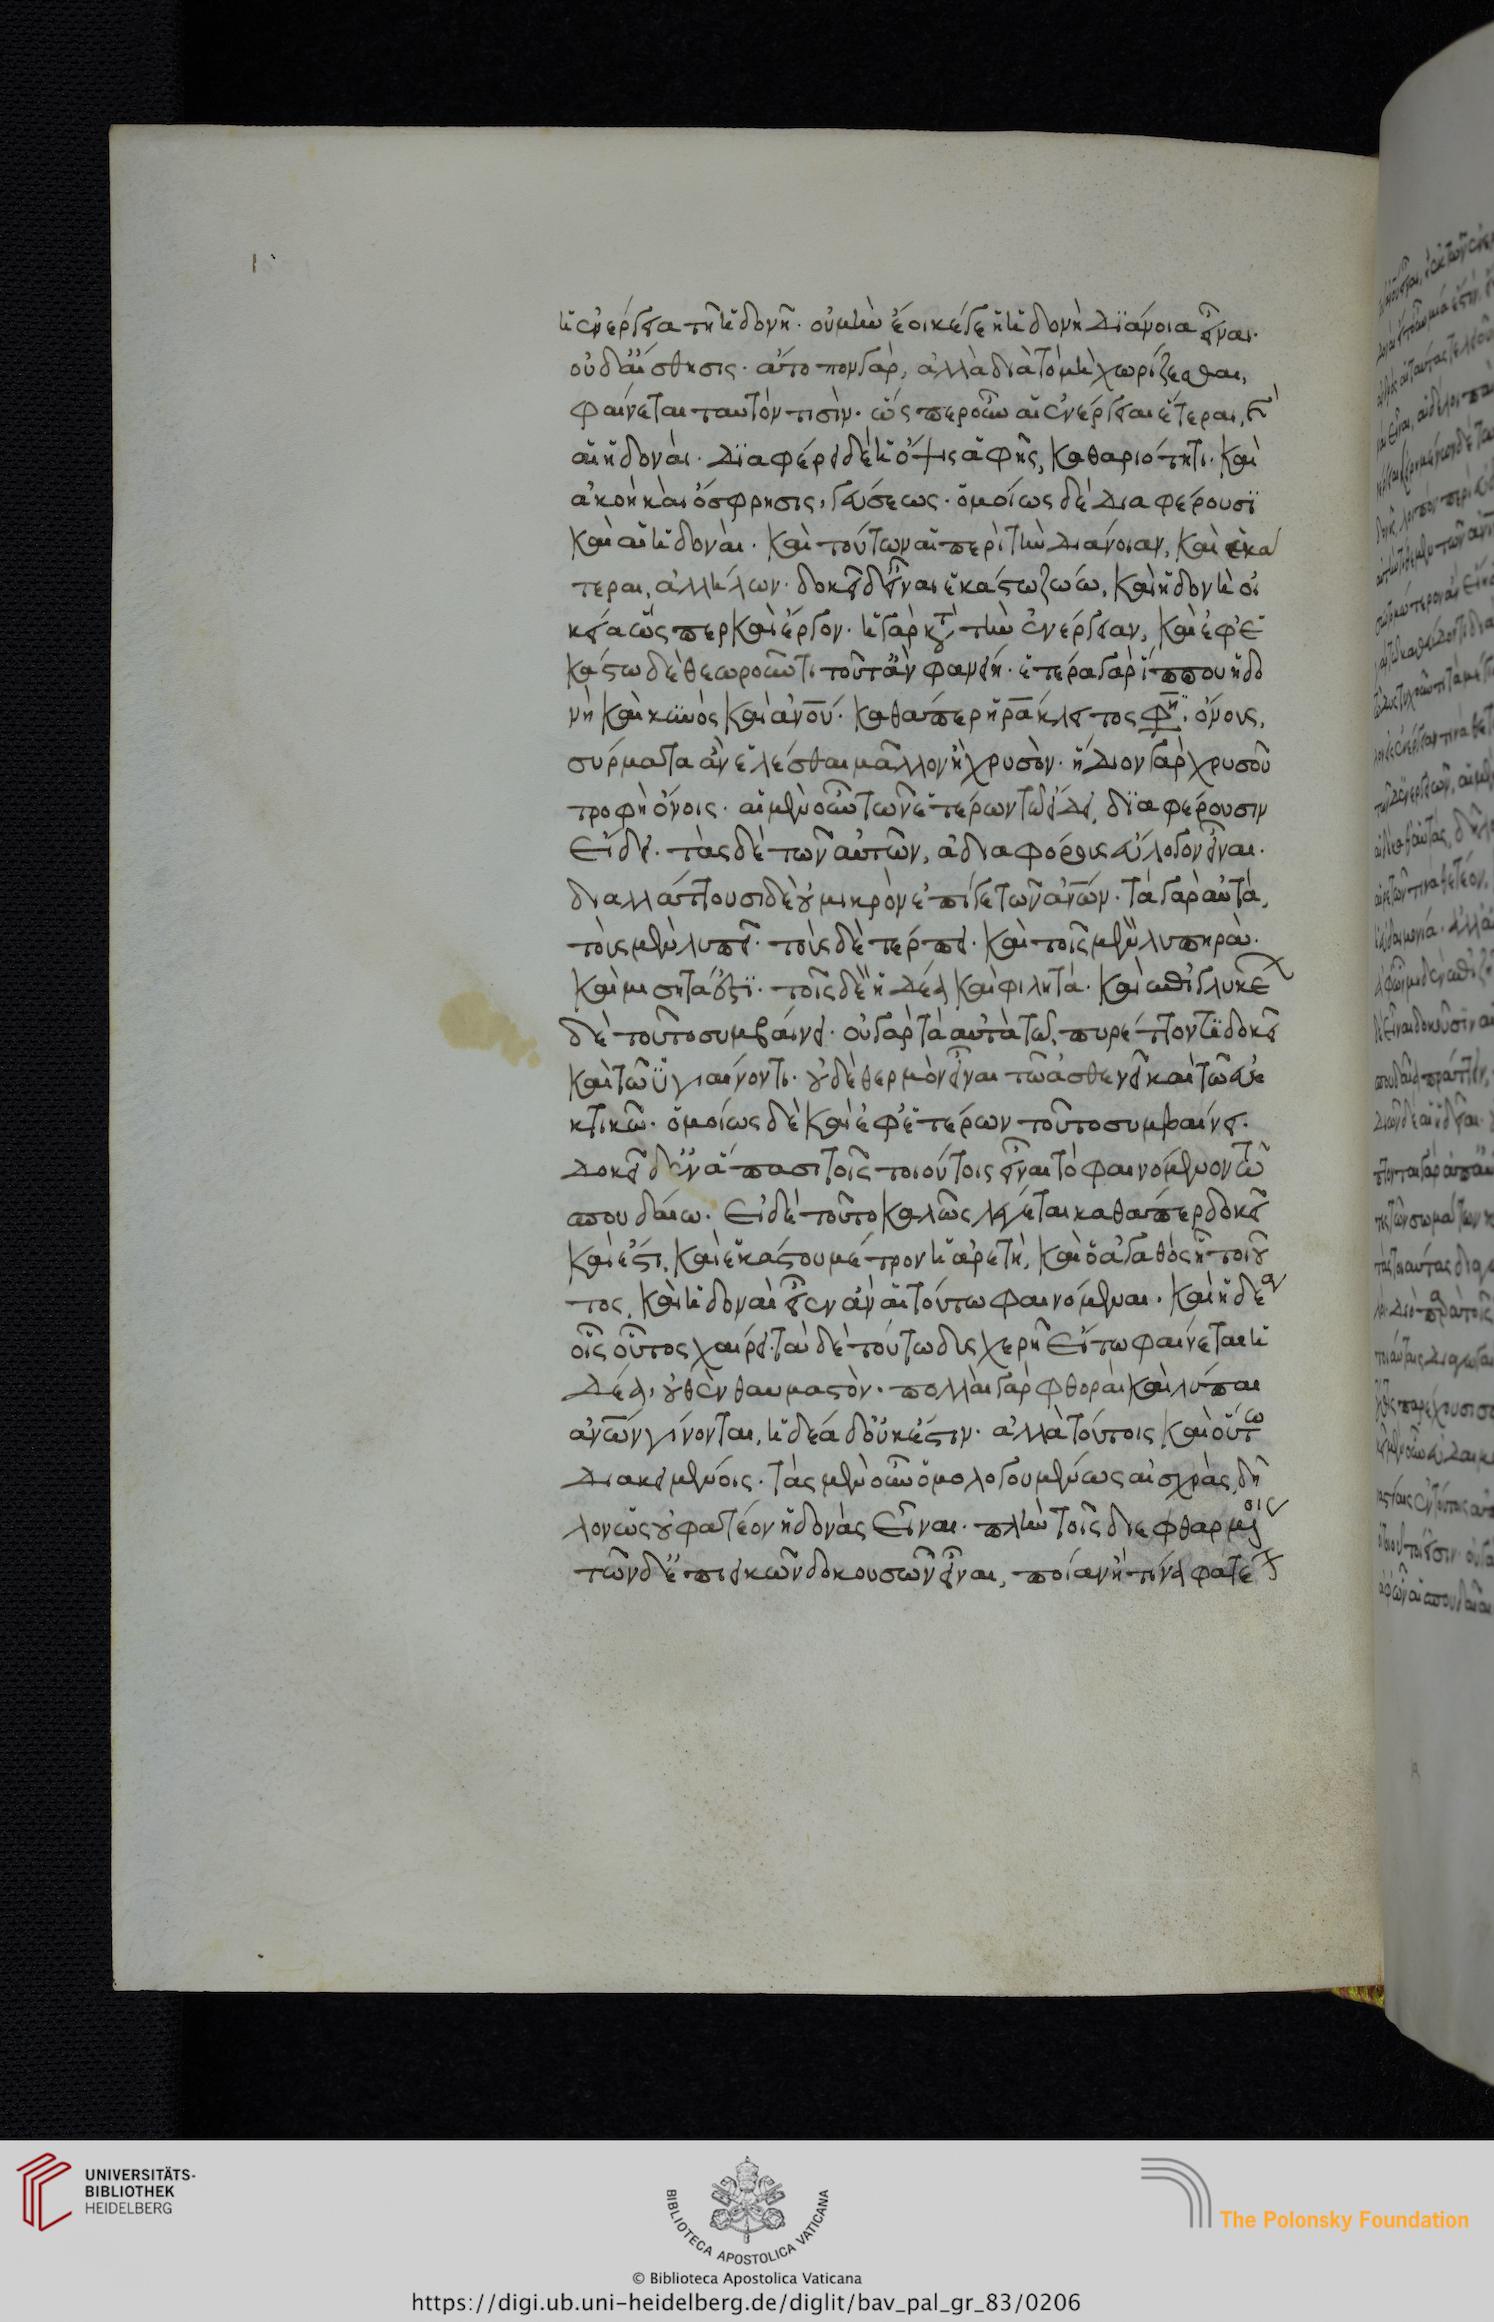 ἡ ἐνέργεια τῇ ἡδονῇ. οὐ μὴν ἔοικέ γε ἡ ἡδονὴ διάνοια εἶναι.
οὐδ' αἴσθησις. ἄτοπον γάρ, ἀλλὰ διὰ τὸ μὴ χωρίζεσθαι,
φαίνεται ταυτόν τισίν. ὥσπερ οὖν αἱ ἐνέργειαι ἕτεραι, καὶ
αἱ ἡδοναί. διαφέρει δὲ ἡ ὄψις ἁφῆς, καθαριότητι. καὶ
ἀκοὴ καὶ ὄσφρησις, γεύσεως. ὁμοίως δὲ διαφέρουσι
καὶ αἱ ἡδοναί. καὶ τούτων αἱ περὶ τὴν διάνοιαν, καὶ ἑκά
τεραι, ἀλλήλων. δοκεῖ δ' εἶναι ἑκάστω ζώω, καὶ ἡδονὴ οἰ
κεία ὥσπερ καὶ ἔργον. ἡ γὰρ κατὰ τὴν ἐνέργειαν, καὶ ἐφ' ἑ
κάστω δὲ θεωροῦντι τοῦτ' ἂν φανείη. ἑτέρα γὰρ ἵππου ἡδο
νὴ καὶ κυνὸς καὶ ἀνου. καθάπερ ἡράκλειτος φη. ὄνους,
σύρματα ἂν ἑλέσθαι μᾶλλον ἢ χρυσόν. ἥδιον γὰρ χρυσοῦ
τροφὴ ὄνοις. αἱ μὲν οὖν τῶν ἑτέρων τῶ εἴδει, διαφέρουσιν
εἴδει. τὰς δὲ τῶν αὐτῶν, ἀδιαφόρους εὔλογον εἶναι.
διαλλάττουσι δὲ οὐ μικρὸν ἐπί γε τῶν ἀνων. τὰ γὰρ αὐτὰ,
τοὺς μὲν λυπεῖ. τοὺς δὲ τέρπει. καὶ τοῖς μὲν λυπηρὰ.
καὶ μισητά ἐστι. τοῖς δὲ ἡδέα καὶ φιλητά. καὶ ἐπὶ γλυκέων
δὲ τοῦτο συμβαίνει. οὐ γὰρ τὰ αὐτὰ τῶ πυρέττοντι δοκεῖ
καὶ τῶ ὑγιαίνοντι. οὐδὲ θερμὸν εἶναι τῶ ἀσθενεῖ καὶ τῶ εὐε
κτικῶ. ὁμοίως δὲ καὶ ἐφ' ἑτέρων τοῦτο συμβαίνει.
δοκεῖ δ' ἐν ἅπασι τοῖς τοιούτοις εἶναι τὸ φαινόμενον τῶ
σπουδαίω. εἰ δὲ τοῦτο καλῶς λέγεται καθάπερ δοκεῖ
καὶ ἔστι. καὶ ἑκάστου μέτρον ἡ ἀρετὴ, καὶ ὁ ἀγαθὸς ἧ τοιοῦ
τος, καὶ ἡδοναὶ εἶεν ἂν αἱ τούτω φαινόμεναι. καὶ ἡδέα
οἷς οὗτος χαίρει. τὰ δὲ τούτω δυσχερῆ εἴ τω φαίνεται ἡ
δέα, οὐθὲν θαυμαστόν. πολλαὶ γὰρ φθοραὶ καὶ λύπαι
ἀνων γίνονται, ἡδέα δ' οὐκ ἔστιν. ἀλλὰ τούτοις καὶ οὕτω
διακειμένοις. τὰς μὲν οὖν ὁμολογουμένως αἰσχρὰς, δῆ
λον ὡς οὐ φατέον ἡδονὰς εἶναι. πλὴν τοῖς διεφθαρμένοις
τῶν δ' ἐπιεικῶν δοκουσῶν εἶναι, ποίαν ἢ τίνα φατέον
UNIVERSITÄTS-
BIBLIOTHEK
HEIDELBERG
BIBLIOTECA APOSTOLICA VATICANA
The Polonsky Foundation
© Biblioteca Apostolica Vaticana
https://digi.ub.uni-heidelberg.de/diglit/bav_pal_gr_83/0206